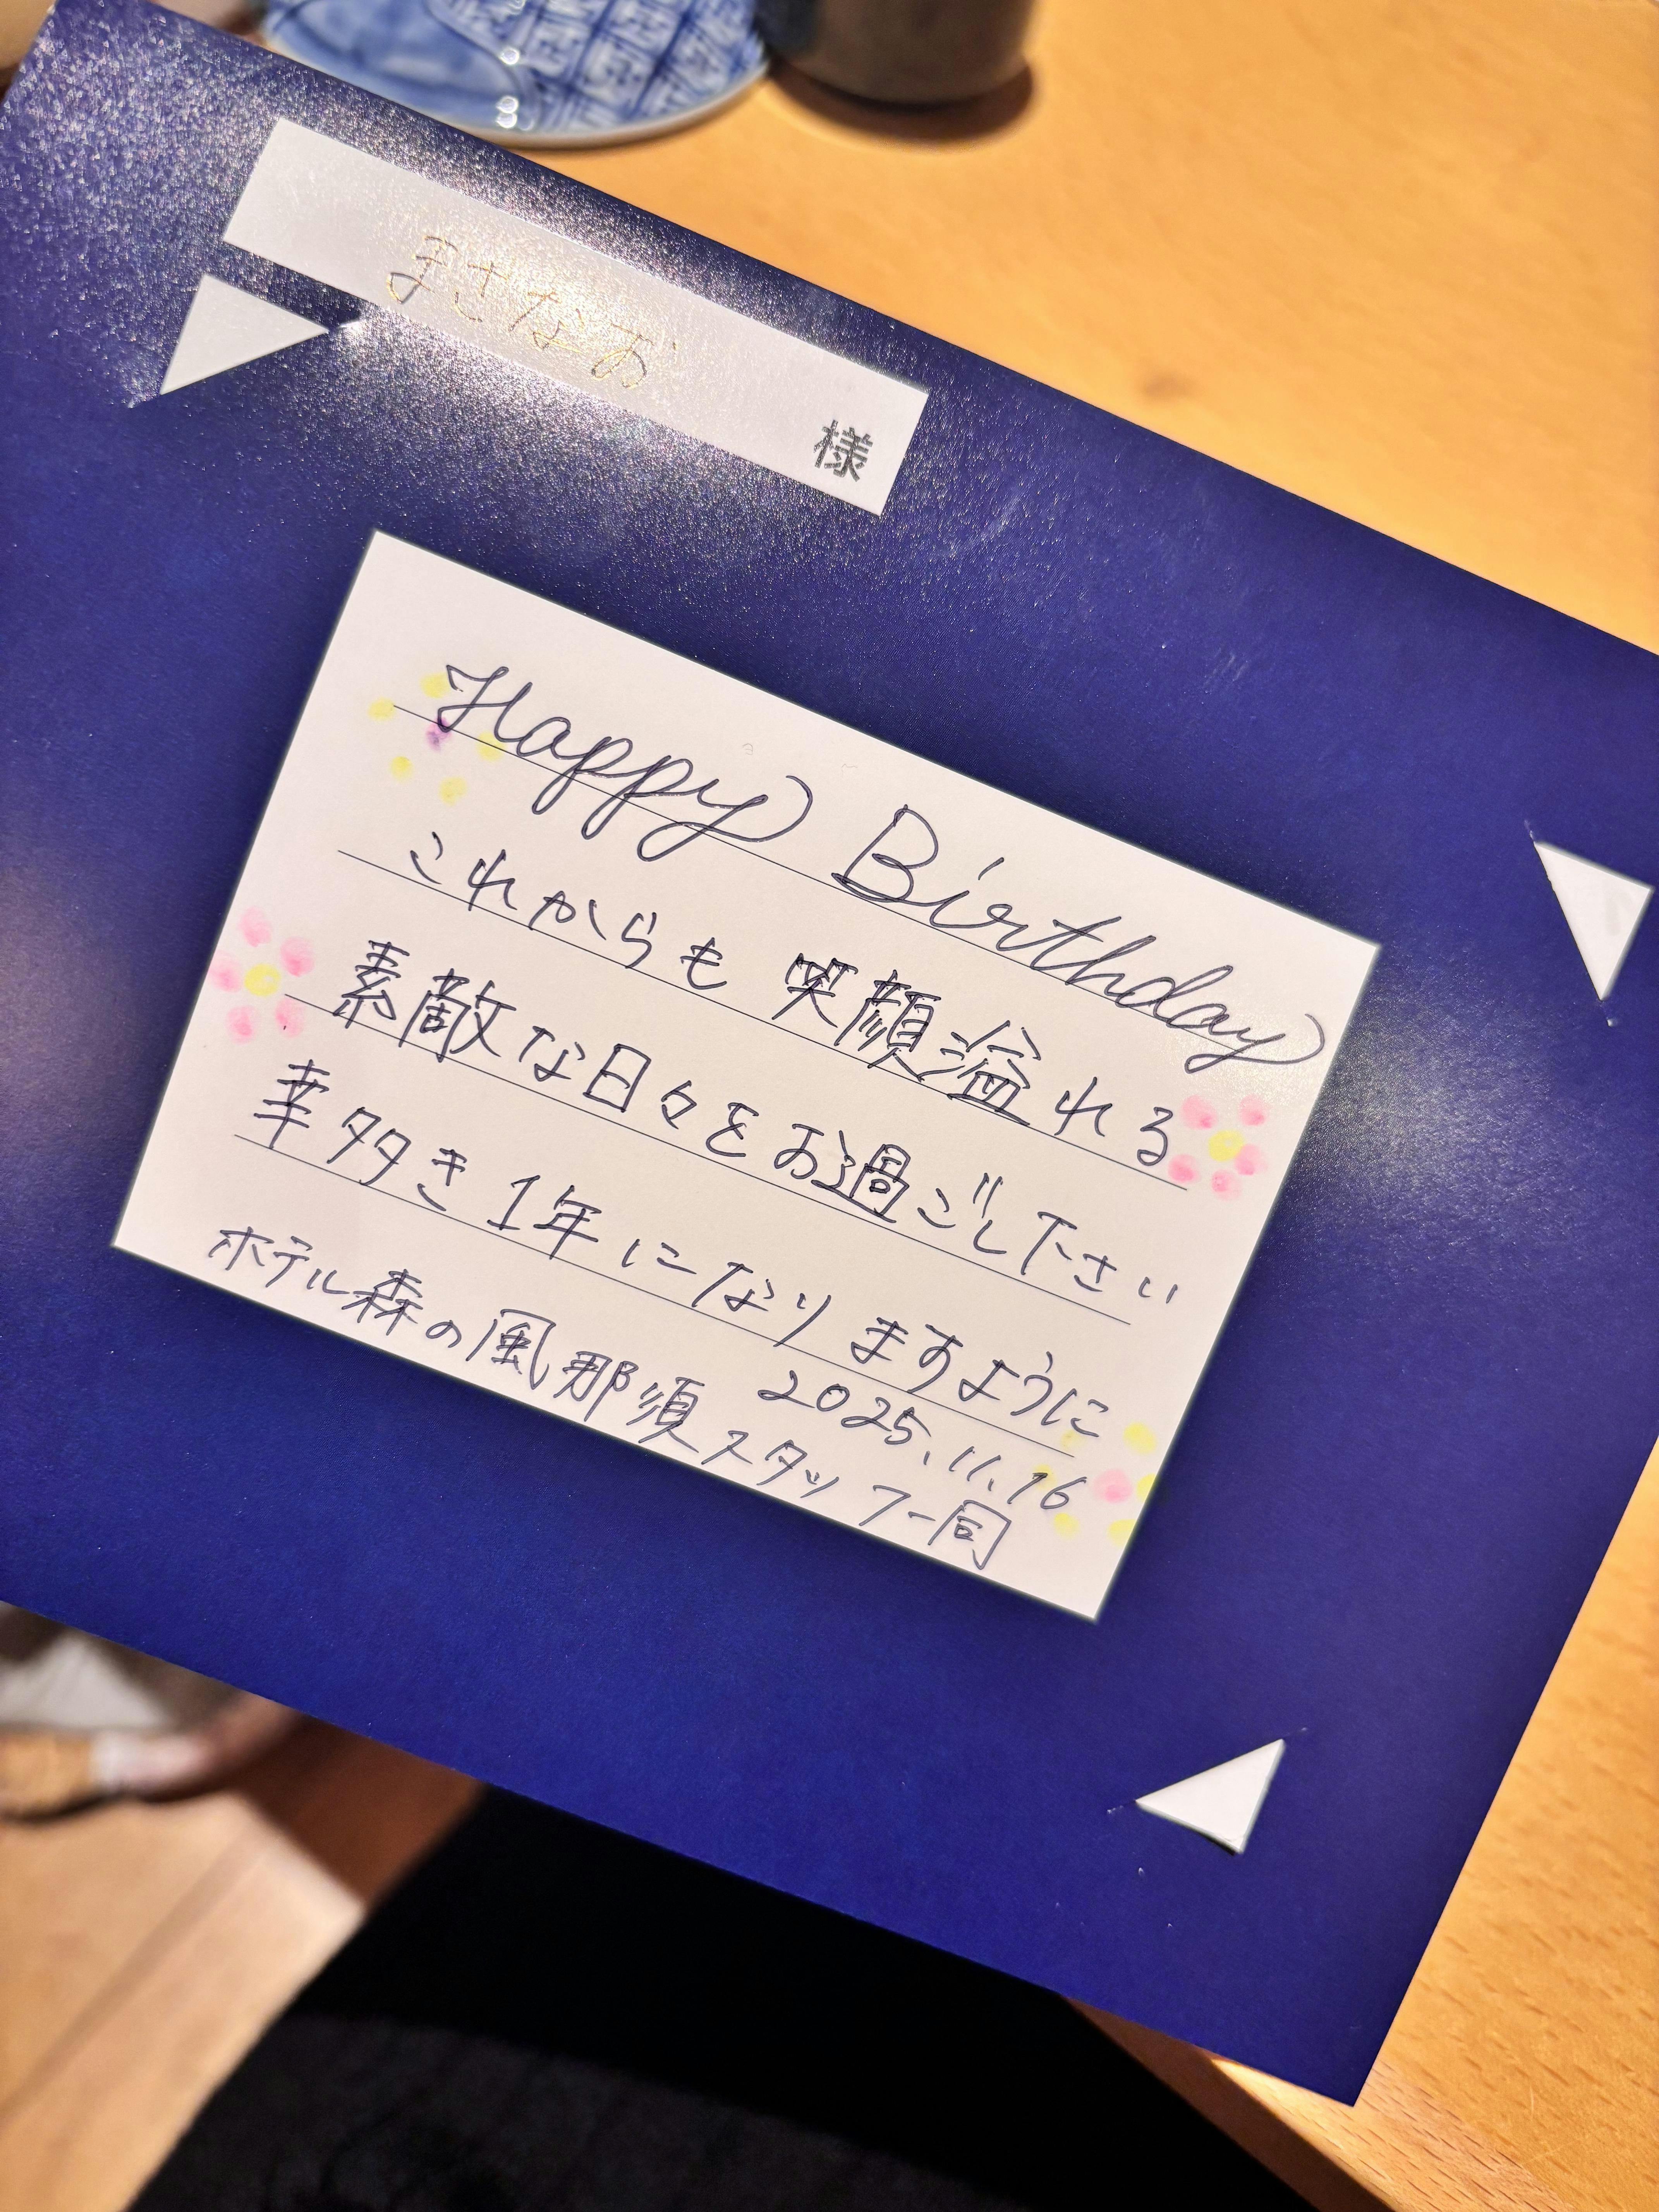 まさなお 様
Happy Birthday
これからも 笑顔溢れる
素敵な日々をお過ごし下さい
幸多き1年になりますように
2025.11.16
ホテル森の風那須スタッフ一同